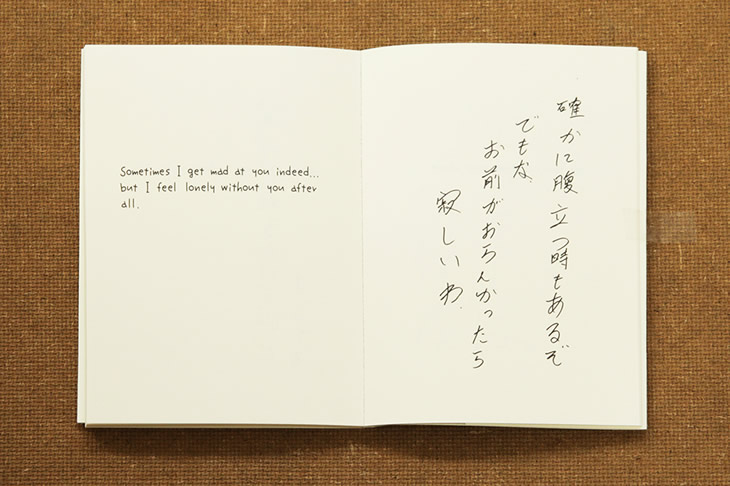 Sometimes I get mad at you indeed...
but I feel lonely without you after
all.
確かに腹立つ時もあるぞ
でもな、
お前がおらんかったら
寂しいわ.